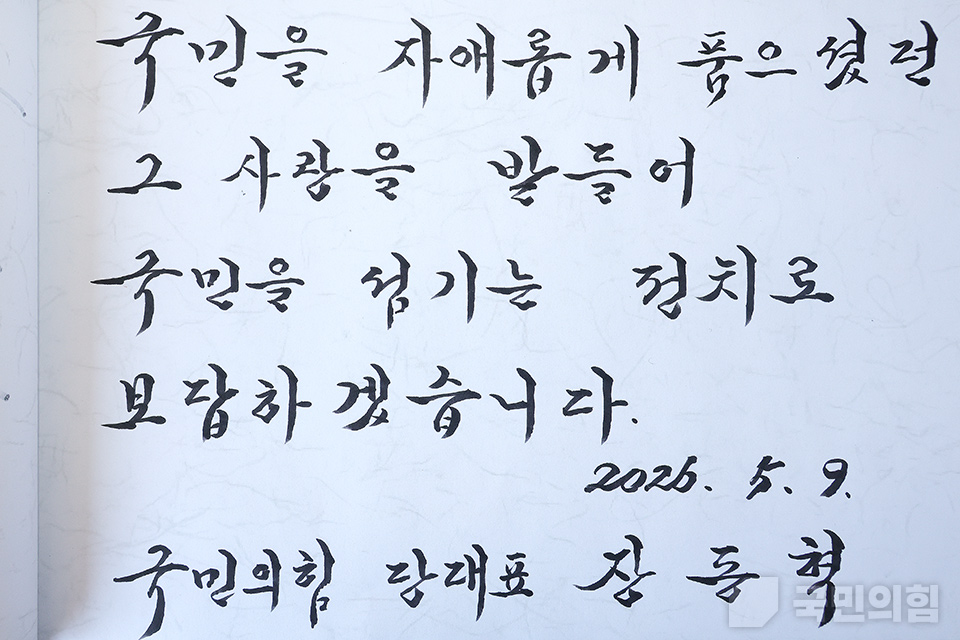 국민을 자애롭게 품으셨던
그 사랑을 받들어
국민을 섬기는 정치로
보답하겠습니다.
2026. 5. 9.
국민의힘 당대표 장동혁
국민의힘